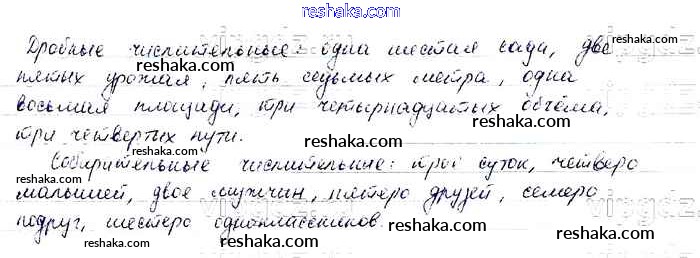 reshaka.com
Дробные числительные: одна шестая сада, две
пятых урожая, пять седьмых метра, одна
восьмая площади, три четырнадцатых объёма,
три четвертых пути.
Собирательные числительные: трое суток, четверо
малышей, двое мужчин, пятеро друзей, семеро
подруг, шестеро одноклассников.